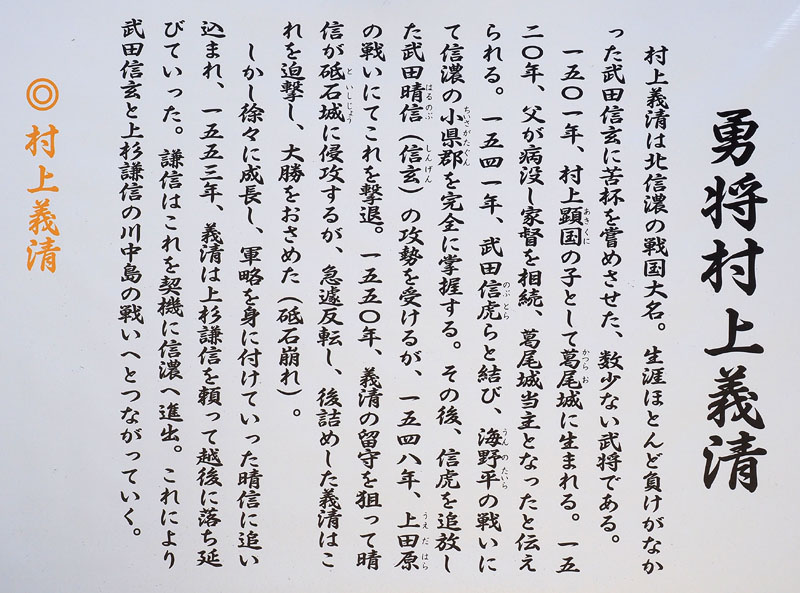 勇将村上義清
村上義清は北信濃の戦国大名。生涯ほとんど負けがなか
った武田信玄に苦杯を嘗めさせた、数少ない武将である。
一五〇一年、村上顕国の子として葛尾城に生まれる。一五
あきくに
かつらお
二〇年、父が病没し家督を相続、葛尾城当主となったと伝え
られる。一五四一年、武田信虎らと結び、海野平の戦いに
のぶとら
うんのたいら
て信濃の小県郡を完全に掌握する。その後、信虎を追放し
ちいさがたぐん
た武田晴信（信玄）の攻勢を受けるが、一五四八年、上田原
はるのぶ
しんげん
うえだはら
の戦いにてこれを撃退。一五五〇年、義清の留守を狙って晴
信が砥石城に侵攻するが、急遽反転し、後詰めした義清はこ
といしじょう
れを迫撃し、大勝をおさめた（砥石崩れ）。
しかし徐々に成長し、軍略を身に付けていった晴信に追い
込まれ、一五五三年、義清は上杉謙信を頼って越後に落ち延
びていった。謙信はこれを契機に信濃へ進出。これにより
武田信玄と上杉謙信の川中島の戦いへとつながっていく。
◎村上義清